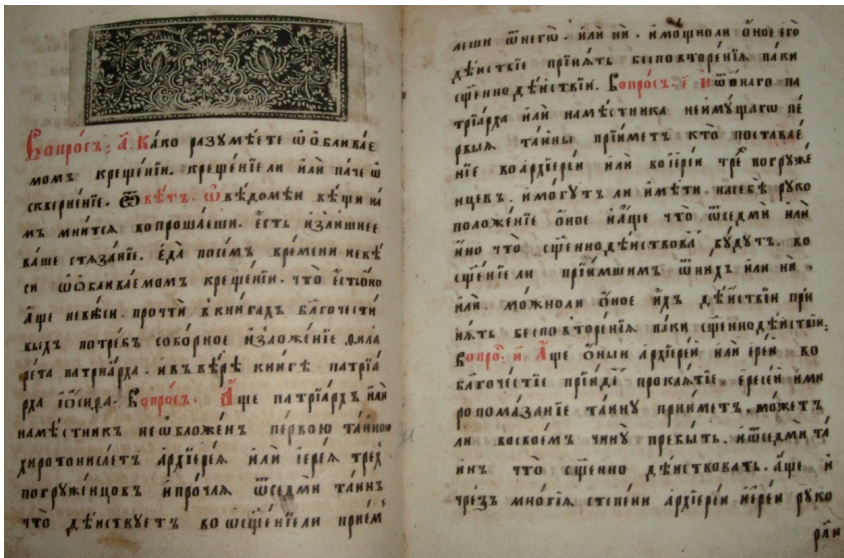 Вопро́съ: а҃. Ка́ко разумѣ́ете ѡ҆ѡ҆блива́е
момъ креще́нїи. креще́нїели и҆лѝ па́че ѡ҆
скверне́нїе. Ѿвѣ́тъ. ѡ҆ вѣ́домѣи ве́щи на́
мъ мни́тся вопроша́еши. є҆́сть и҆зли́шнее
ва́ше стяза́нїе. є҆да̀ посе́мъ вре́мени невѣ́
си ѡ҆ѡ҆блива́емомъ креще́нїи. что̀ є҆́стьоно
а҆́ще невѣ́си. прочтѝ вкни́гахъ бл҃гочести́
выхъ потре́бъ собо́рное и҆зложе́нїе фила
ре́та патриа́рха. и҆ввѣ́рѣ кни́ге патрїа́
рха і҆ѡ҆́сифа. Вопро́съ. А҆́ще патрїа́рхъ и҆лѝ
намѣ́стник неѡ҆бложе́нъ пе́рвою та́йною
хиротониса́етъ а҆рхїере́я и҆лѝ і҆ере́я тре́х
погруже́нцовъ и҆про́чая ѿседмѝ та́инъ
что̀ дѣ́йствуетъ во ѡ҆сщ҃е́нїели прїе́м
леши ѿнегѡ̀. и҆лѝ нѝ. и҆мо́щноли о҆́ное є҆го̀
дѣ́йствїе прїня́ть бесповторе́нїя па́ки
сщ҃еннодѣ́йствїи. Вопро́съ. є҃ и҆ѿо́наго па
трїа́рха и҆лѝ намѣ́стника неиму́щагѡ пе́
рвыя та́йны прїи́метъ кто̀ поставле́
нїе воа҆рхїере́и и҆лѝ воі҆ере́и тре́х погруже́
нцевъ. и҆мо́гутъ ли и҆мѣ́ти. насебѣ̀ руко
положе́нїе о҆́ное и҆а҆́ще что̀ ѿседмѝ и҆лѝ
и҆́но что̀ сщ҃еннодѣ́йствова бу́дутъ. во
сщ҃е́нїели прїи́мшимъ ѿни́хъ и҆лѝ нѝ.
и҆лѝ мо́жноли о҆́ное и҆́хъ дѣ́йствїи при
ня́ть бесповторе́нїя па́ки сщ҃еннодѣ́йствїи:
Вопро́с. и҃. А҆́ще о҆́ныи а҆рхїере́й и҆лѝ і҆ере́й во
бл҃гоче́стїе прїи́де прокля́тїе. є҆́ресеи и҆ми
ропома́занїе та́йну прїи́метъ. мо́жетъ
ли восвое́мъ чи́ну пребы́ть. и҆ѿседмѝ та́
инъ что̀ сщ҃е́нно дѣ́йствовать. а҆́ще и҆
чре́зъ мно́гїя сте́пени а҆рхїере́и и҆і҆ере́и руко